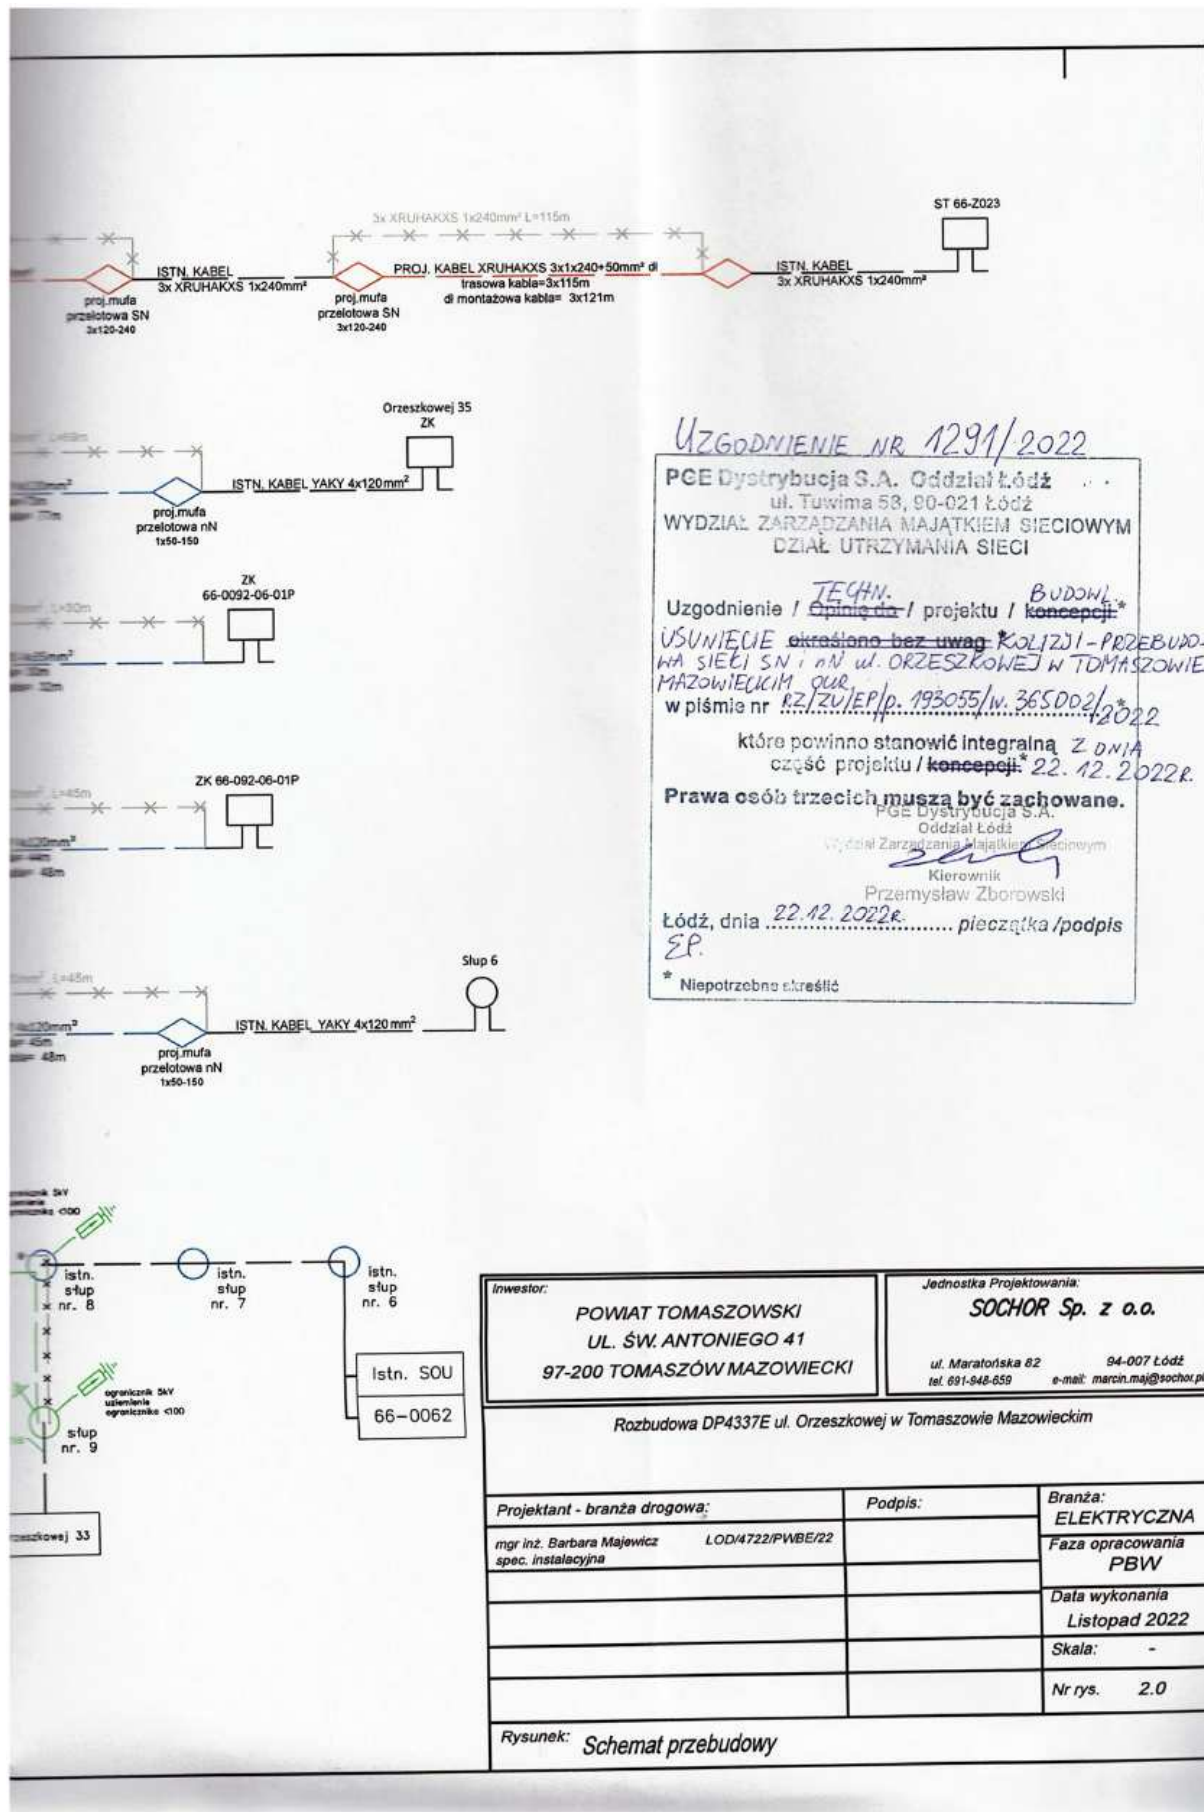 ST 66-Z023
3x XRUHAKXS 1x240mm² L=115m
ISTN. KABEL
3x XRUHAKXS 1x240mm²
PROJ. KABEL XRUHAKXS 3x1x240+50mm² dł
trasowa kabla=3x115m
dł montażowa kabla= 3x121m
ISTN. KABEL
3x XRUHAKXS 1x240mm²
proj.mufa
przelotowa SN
3x120-240
proj.mufa
przelotowa SN
3x120-240
Orzeszkowej 35
ZK
ISTN. KABEL YAKY 4x120mm²
77m
proj.mufa
przelotowa nN
1x50-150
ZK
66-0092-06-01P
L=30m
32m
ZK 66-092-06-01P
L=45m
4x120mm²
44m
48m
Słup 6
L=45m
4x120mm²
45m
48m
ISTN. KABEL YAKY 4x120mm²
proj.mufa
przelotowa nN
1x50-150
UZGODNIENIE NR 1291/2022
PGE Dystrybucja S.A. Oddział Łódź
ul. Tuwima 58, 90-021 Łódź
WYDZIAŁ ZARZĄDZANIA MAJĄTKIEM SIECIOWYM
DZIAŁ UTRZYMANIA SIECI
TECHN. BUDOWL.
Uzgodnienie / Opinię do / projektu / koncepcji *
USUNIĘCIE określono bez uwag * KOLIZJI - PRZEBUDO-
WA SIECI SN i nN ul. ORZESZKOWEJ W TOMASZOWIE
MAZOWIECKIM
w piśmie nr RZ/ZU/EP/p. 193055/w. 365002/2022 *
które powinno stanowić integralną Z DNIA
część projektu / koncepcji.* 22.12.2022r.
Prawa osób trzecich muszą być zachowane.
PGE Dystrybucja S.A.
Oddział Łódź
Wydział Zarządzania Majątkiem Sieciowym
Kierownik
Przemysław Zborowski
Łódź, dnia 22.12.2022r. pieczątka /podpis
EP.
* Niepotrzebne skreślić
istn.
słup
nr. 8
istn.
słup
nr. 7
istn.
słup
nr. 6
Istn. SOU
66-0062
ogranicznik 5kV
uziemienie
ogranicznika <10Ω
słup
nr. 9
33
Inwestor:
POWIAT TOMASZOWSKI
UL. ŚW. ANTONIEGO 41
97-200 TOMASZÓW MAZOWIECKI
Jednostka Projektowania:
SOCHOR Sp. z o.o.
ul. Maratońska 82 94-007 Łódź
tel. 691-948-659 e-mail: marcin.maj@sochor.pl
Rozbudowa DP4337E ul. Orzeszkowej w Tomaszowie Mazowieckim
Projektant - branża drogowa: Podpis:
mgr inż. Barbara Majewicz LOD/4722/PWBE/22
spec. instalacyjna
Branża:
ELEKTRYCZNA
Faza opracowania
PBW
Data wykonania
Listopad 2022
Skala: -
Nr rys. 2.0
Rysunek: Schemat przebudowy